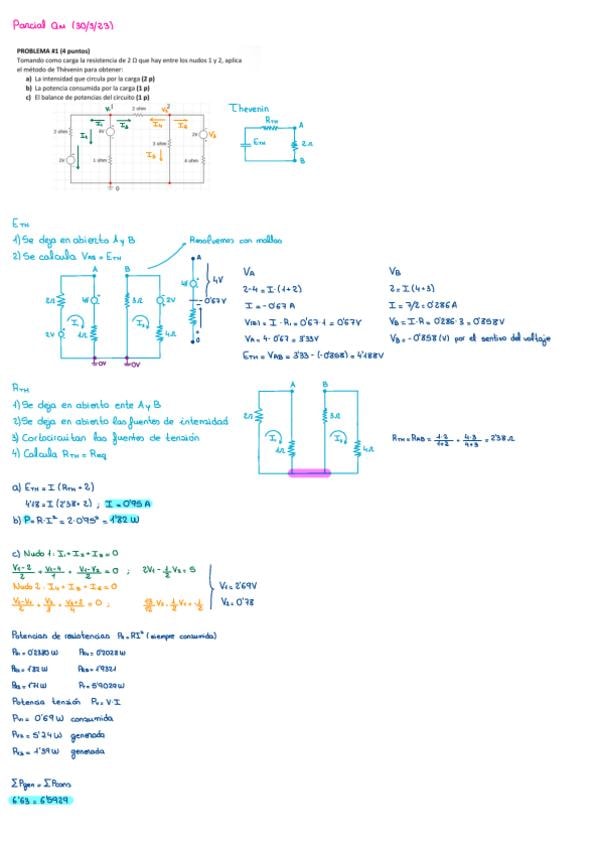 Parcial Qu (30/3/23)
PROBLEMA #1 (4 puntos)
Tomando como carga la resistencia de 2 Ω que hay entre los nudos 1 y 2, aplica
el método de Thévenin para obtener:
a) La intensidad que circula por la carga (2 p)
b) La potencia consumida por la carga (1 p)
c) El balance de potencias del circuito (1 p)
Thevenin
RTH
A
ETH
2Ω
B
V1
2 ohm
V2
I1
I3
I4
2 ohm
4V
2V
V3
I5
3 ohm
2V
1 ohm
4 ohm
0
ETH
1) Se deja en abierto A y B
2) Se calcula VAB = ETH
Resolvemos con mallas
A
B
A
4V
0'67V
0
2Ω
4V
3Ω
2V
2V
1Ω
4Ω
0V
0V
VA
2-4 = I·(1+2)
I = -0'67 A
V(R1) = I·R1 = 0'67·1 = 0'67V
VA = 4-0'67 = 3'33V
ETH = VAB = 3'33 - (-0'858) = 4'188V
VB
2 = I(4+3)
I = 7/2 = 0'286A
VB = I·R = 0'286·3 = 0'858V
VB = -0'858 (V) por el sentivo del voltaje
RTH
1) Se deja en abierto ente A y B
2) Se deja en abierto las fuentes de intensidad
3) Cortocircuitan las fuentes de tensión
4) Calcula RTH = Req
A
B
2Ω
3Ω
1Ω
4Ω
RTH = RAB = 1·2/1+2 + 4·3/4+3 = 2'38Ω
a) ETH = I (RTH + 2)
4'18 = I (2'38 + 2) ; I = 0'95 A
b) P = R·I² = 2·0'95² = 1'82 W
c) Nudo 1: I1 + I2 + I3 = 0
V1-2/2 + V1-4/1 + V1-V2/2 = 0 ; 2V1 - 1/2 V2 = 5
Nudo 2: I4 + I5 - I6 = 0
V2-V1/2 + V2/3 + V2+2/4 = 0 ; 13/12 V2 - 1/2 V1 = -1/2
V1 = 2'69V
V2 = 0'78
Potencias de resistencias PR = RI² (siempre consumida)
PR1 = 0'2380 W
PR4 = 0'2028 W
PR2 = 1'82 W
PR3 = 1'71 W
Potencia tensión PV = V·I
PV1 = 0'69 W consumida
PV2 = 5'24 W generada
PV3 = 1'39 W generada
ΣPgen = ΣPcons
6'63 = 6'5929